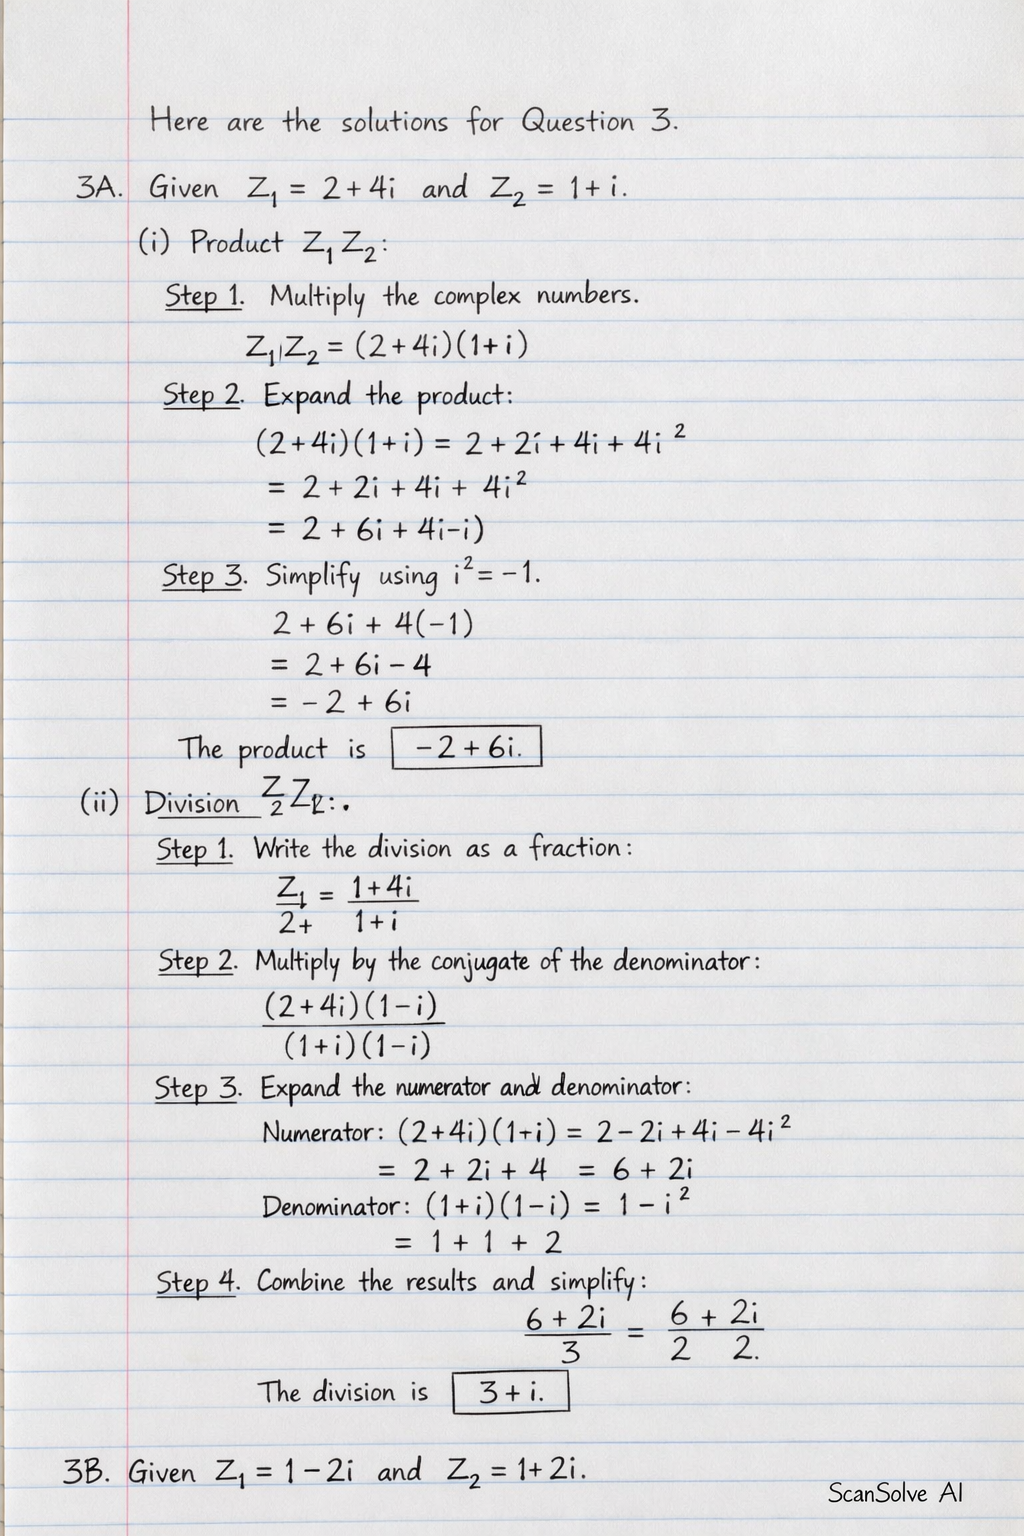 Here are the solutions for Question 3.
3A. Given Z₁ = 2 + 4i and Z₂ = 1 + i.
(i) Product Z₁ Z₂:
Step 1. Multiply the complex numbers.
Z₁|Z₂ = (2+4i)(1+i)
Step 2. Expand the product:
(2+4i)(1+i) = 2 + 2i + 4i + 4i²
= 2 + 2i + 4i + 4i²
= 2 + 6i + 4i-i)
Step 3. Simplify using i² = -1.
2 + 6i + 4(-1)
= 2 + 6i - 4
= -2 + 6i
The product is -2 + 6i.
(ii) Division
Step 1. Write the division as a fraction:
Z₁ = 1+4i
2+ 1+i
Step 2. Multiply by the conjugate of the denominator:
(2+4i)(1-i)
(1+i)(1-i)
Step 3. Expand the numerator and denominator:
Numerator: (2+4i)(1+i) = 2 - 2i + 4i - 4i²
= 2 + 2i + 4 = 6 + 2i
Denominator: (1+i)(1-i) = 1 - i²
= 1 + 1 + 2
Step 4. Combine the results and simplify:
6 + 2i = 6 + 2i
3 2 2.
The division is 3 + i.
3B. Given Z₁ = 1 - 2i and Z₂ = 1 + 2i.
ScanSolve AI